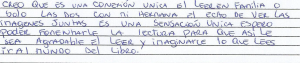 CREO QUE ES UNA CONEXIÓN UNICA EL LEER EN FAMILIA O
SOLO LAS DOS CON MI HERMANA EL ECHO DE VER LAS
IMAGENES JUNTAS ES UNA SENSACIÓN UNICA ESPERO
PODER FOMENTARLE LA LECTURA PARA QUE ASI LE
SEA AGRADABLE EL LEER Y IMAGINARLE LO QUE LEES
IR AL MUNDO DEL LIBRO.